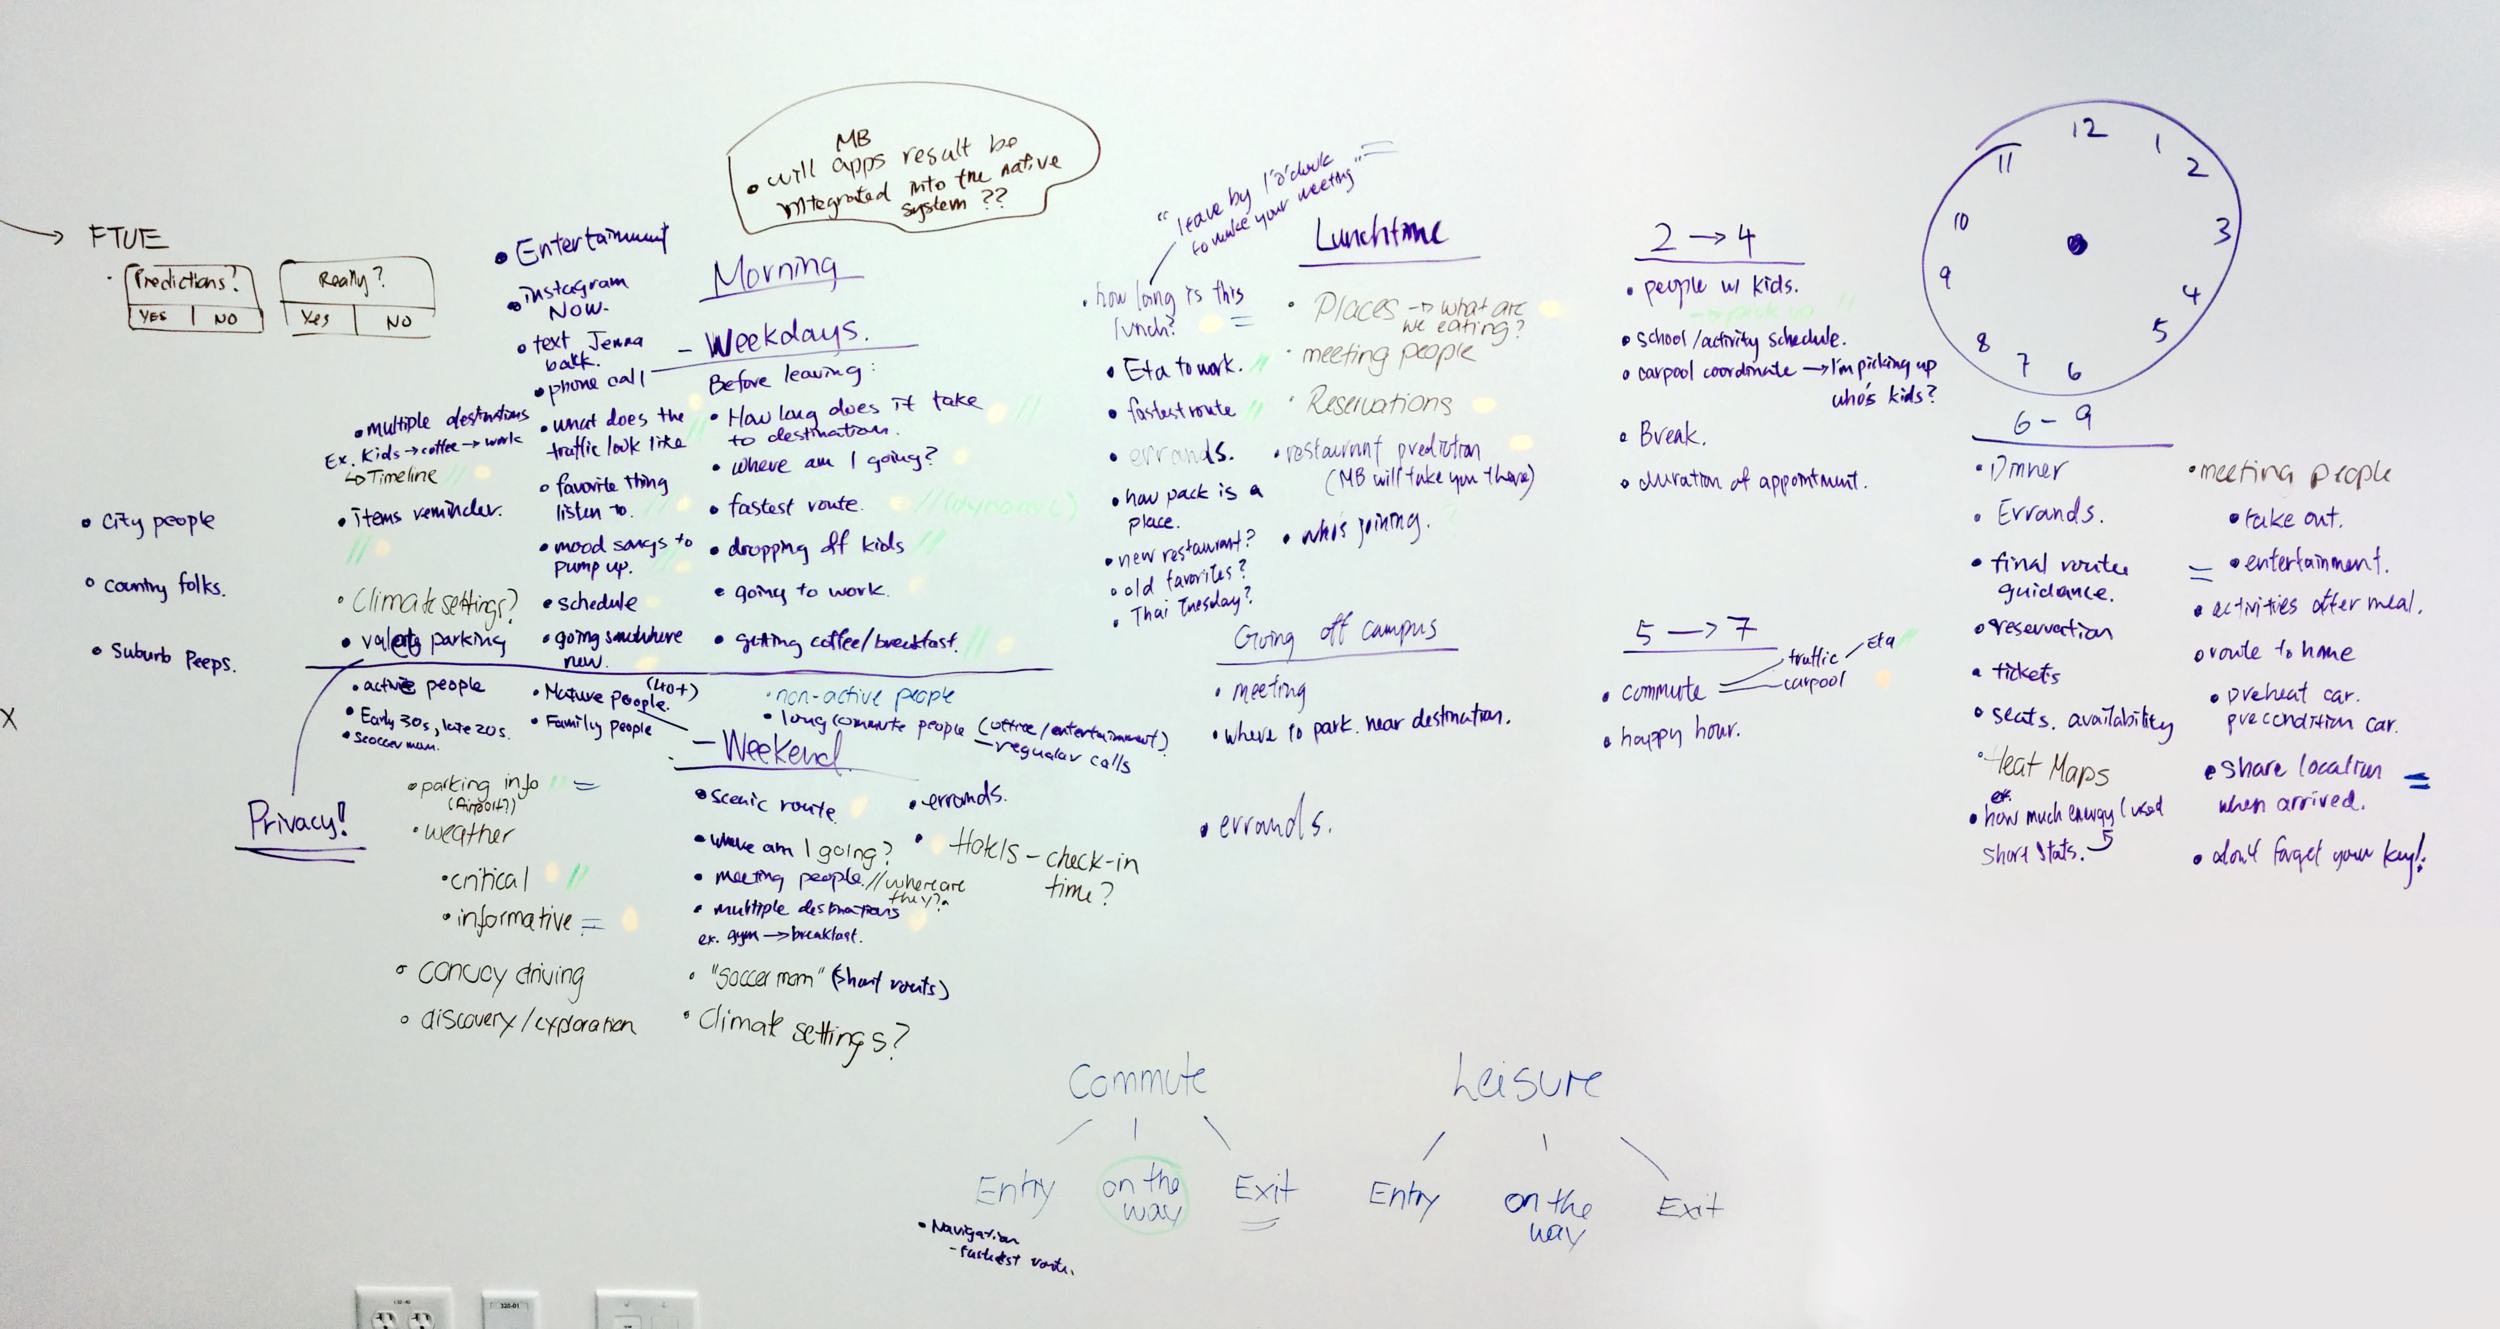 FTUE
Predictions?
YES NO
Really?
Yes NO
• City people
• country folks.
• Suburb Peeps.
X
MB
• will apps result be
integrated into the native
system ??
• Entertainment
• instagram
Now.
• text Jenna
back.
• phone call
• what does the
traffic look like
• favorite thing
listen to.
• mood songs to
pump up.
• schedule
• going somewhere
new.
• multiple destinations
Ex. Kids → coffee → work
↳ Timeline
• items reminder.
• Climate settings?
• parking
Privacy!
Morning
- Weekdays.
Before leaving:
• How long does it take
to destination.
• where am I going?
• fastest route. // (dynamic)
• dropping off kids
• going to work.
• getting coffee/breakfast.
• active people
• Early 30s, late 20s.
• soccer mom.
• Mature people. (40+)
• Family people
• non-active people
• long commute people (office/entertainment)
- regular calls
- Weekend
• parking info
(Airport?)
• weather
• critical
• informative
• convoy driving
• discovery/exploration
• scenic route
• where am I going?
• meeting people. // where are
they?
• multiple destinations
ex. gym → breakfast.
• "soccer mom" (short routes)
• Climate settings?
• errands.
• Hotels - check-in
time?
"leave by 1 o'clock
to make your meeting"
Lunchtime
• how long is this
lunch?
• Eta to work.
• fastest route
• errands.
• how pack is a
place.
• new restaurant?
• old favorites?
• Thai Tuesday?
• Places → what are
we eating?
• meeting people
• Reservations
• restaurant prediction
(MB will take you there)
• who's joining.
Going off campus
• meeting
• where to park near destination.
• errands.
2 → 4
• people w/ kids.
→ pick up
• school/activity schedule.
• carpool coordinate → I'm picking up
who's kids?
• Break.
• duration of appointment.
5 → 7
• commute
traffic
Eta
carpool
• happy hour.
12
1
2
3
4
5
6
7
8
9
10
11
6 - 9
• Dinner
• Errands.
• final route
guidance.
• reservation
• tickets
• seats. availability
• Heat Maps
ex.
• how much energy I used
short stats.
• meeting people
• take out.
• entertainment.
• activities after meal.
• route to home
• preheat car.
precondition car.
• share location
when arrived.
• don't forget your key!
Commute
Entry
on the
way
Exit
• Navigation
- fastest route.
Leisure
Entry
on the
way
Exit